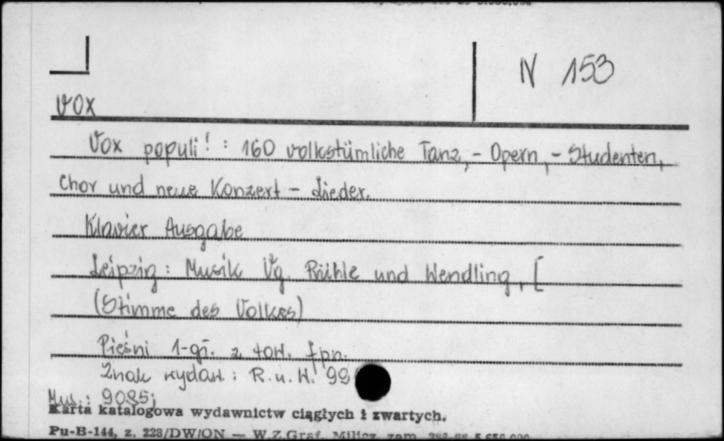 N 153
VOX
Vox populi! : 160 volkstümliche Tanz,- Opern,- Studenten,
Chor und neue Konzert - Lieder.
Klavier Ausgabe
Leipzig : Musik Vg. Rühle und Wendling, [
(Stimme des Volkes)
Pieśni 1-gł. z tow. fpn.
Znak wydaw : R. u. W. 99
Mus.: 9085;
Karta katalogowa wydawnictw ciągłych i zwartych.
Pu-B-144, z. 228/DW/ON — W.Z.Graf. Milicz, zam.